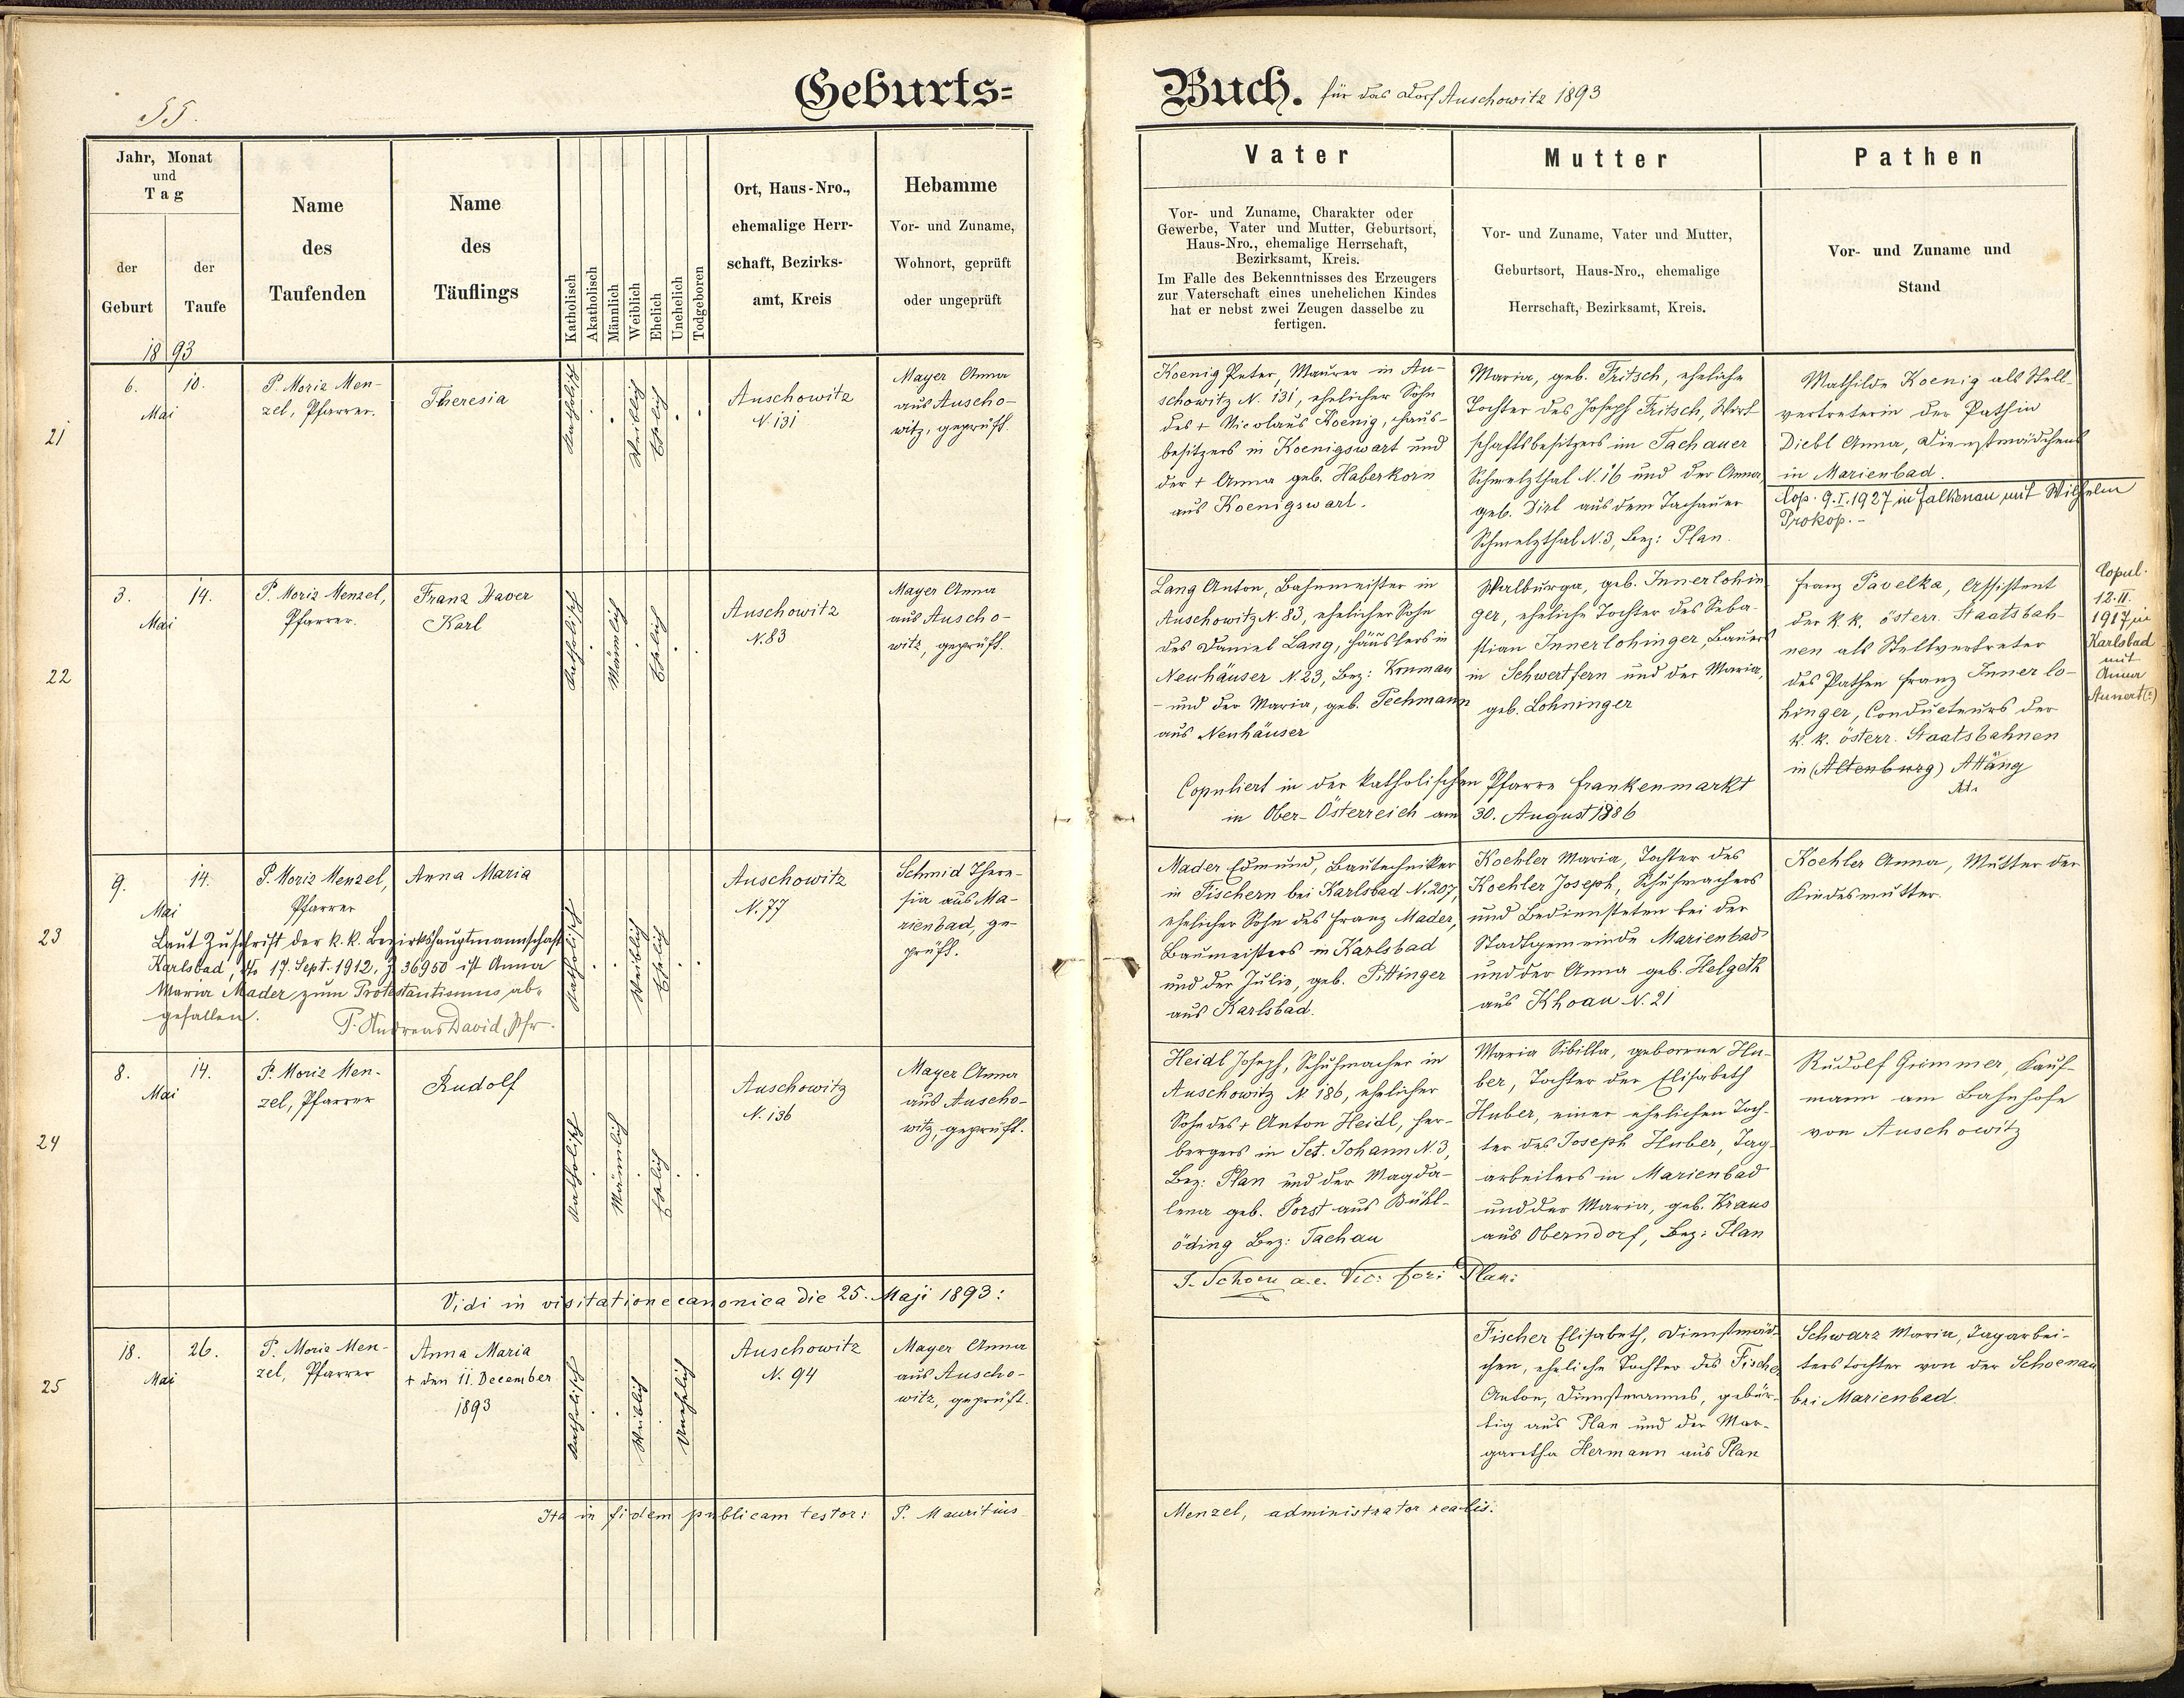 55.
Geburts=
Buch. für das Dorf Auschowitz 1893
Jahr, Monat
und
Tag
der
Geburt
der
Taufe
Name
des
Taufenden
Name
des
Täuflings
Katholisch
Akatholisch
Männlich
Weiblich
Ehelich
Unehelich
Todgeboren
Ort, Haus-Nro.,
ehemalige Herr-
schaft, Bezirks-
amt, Kreis
Hebamme
Vor- und Zuname,
Wohnort, geprüft
oder ungeprüft
Vater
Vor- und Zuname, Charakter oder
Gewerbe, Vater und Mutter, Geburtsort,
Haus-Nro., ehemalige Herrschaft,
Bezirksamt, Kreis.
Im Falle des Bekenntnisses des Erzeugers
zur Vaterschaft eines unehelichen Kindes
hat er nebst zwei Zeugen dasselbe zu
fertigen.
Mutter
Vor- und Zuname, Vater und Mutter,
Geburtsort, Haus-Nro., ehemalige
Herrschaft, Bezirksamt, Kreis.
Pathen
Vor- und Zuname und
Stand
1893
21
6. 10.
Mai
P. Moriz Men-
zel, Pfarrer.
Theresia
Katholisch
Weiblich
Ehelich
Auschowitz
N. 131
Mayer Anna
aus Auscho-
witz, geprüft.
Koenig Peter, Maurer in Au-
schowitz N. 131, ehelicher Sohn
des + Nicolaus Koenig, Haus-
besitzers in Koenigswart und
der + Anna geb. Haberkorn
aus Koenigswart.
Maria, geb. Fritsch, eheliche
Tochter des Joseph Fritsch, Wirt-
schaftsbesitzers im Tachauer
Schmelzthal N. 16 und der Anna,
geb. Dirl aus dem Tachauer
Schmelzthal N. 3, Bez: Plan.
Mathilde Koenig als Stell-
vertreterin der Pathin
Diebl Anna, Dienstmädchens
in Marienbad.
Cop. 9.I.1927 in Falkenau mit Wilhelm
Prokop.-
22
3. 14.
Mai
P. Moriz Menzel,
Pfarrer.
Franz Xaver
Karl
Katholisch
Männlich
Ehelich
Auschowitz
N. 83
Mayer Anna
aus Auscho-
witz, geprüft.
Lang Anton, Bahnmeister in
Auschowitz N. 83, ehelicher Sohn
des Daniel Lang, Häuslers in
Neuhäuser N. 23, Bez: Krumau
- und der Maria, geb. Pechmann
aus Neuhäuser
Walburga, geb. Innerlohin
ger, eheliche Tochter des Seba-
stian Innerlohinger, Bauers
in Schwertfern und der Maria,
geb. Lohninger
Copuliert in der katholischen Pfarre Frankenmarkt
in Ober-Österreich am 30. August 1886
Franz Pavelka, Assistent
der k. k. österr. Staatsbah-
nen als Stellvertreter
des Pathen Franz Innerlo-
hinger, Conducteurs der
k. k. österr. Staatsbahnen
in (Altenburg) Attang
Copul.
12.II.
1917 in
Karlsbad
mit
Anna
Annert(?)
23
9. 14.
Mai
P. Moriz Menzel,
Pfarrer
Anna Maria
Laut Zuschrift der k. k. Bezirkshauptmannschaft
Karlsbad, dto 17. Sept. 1912, Z 36950 ist Anna
Maria Mader zum Protestantismus ab-
gefallen.
P. Andreas David, Pfr.
Katholisch
Weiblich
Ehelich
Auschowitz
N. 77
Schmid There-
sia aus Ma-
rienbad, ge-
prüft.
Mader Edmund, Bautechniker
in Fischern bei Karlsbad N. 207,
ehelicher Sohn des Franz Mader,
Baumeisters in Karlsbad
und der Julie, geb. Pittinger
aus Karlsbad.
Koehler Maria, Tochter des
Koehler Joseph, Schuhmachers
und Bediensteten bei der
Stadtgemeinde Marienbad
und der Anna geb. Helgeth
aus Khoau N. 21
Koehler Anna, Mutter der
Kindesmutter.
24
8. 14.
Mai
P. Moriz Men-
zel, Pfarrer
Rudolf
Katholisch
Männlich
Ehelich
Auschowitz
N. 136
Mayer Anna
aus Auscho-
witz, geprüft.
Heidl Joseph, Schuhmacher in
Auschowitz N 186, ehelicher
Sohn des + Anton Heidl, Her-
bergers in Sct. Johann N. 3,
Bez: Plan und der Magda-
lena geb. Porst aus Bühl-
öding Bez: Tachau
Maria Sibilla, geborene Hu-
ber, Tochter der Elisabeth
Huber, einer ehelichen Toch-
ter des Joseph Huber, Tag-
arbeiters in Marienbad
und der Maria, geb. Kraus
aus Oberndorf, Bez: Plan
Rudolf Grimmer, Kauf-
mann am Bahnhofe
von Auschowitz
Vidi in visitatione canonica die 25. Maji 1893:
J. Schoen a.e. Vic: for: Plan:
25
18. 26.
Mai
P. Moriz Men-
zel, Pfarrer
Anna Maria
+ den 11. December
1893
Katholisch
Weiblich
Unehelich
Auschowitz
N. 94
Mayer Anna
aus Auscho-
witz, geprüft.
Fischer Elisabeth, Dienstmäd-
chen, eheliche Tochter des Fischer
Anton, Dienstmannes, gebür-
tig aus Plan und der Mar-
garetha Hermann aus Plan
Schwarz Maria, Tagarbei-
terstochter von der Schoenau
bei Marienbad
Ita in fidem publicam testor: P. Mauritius
Menzel, administrator realis.